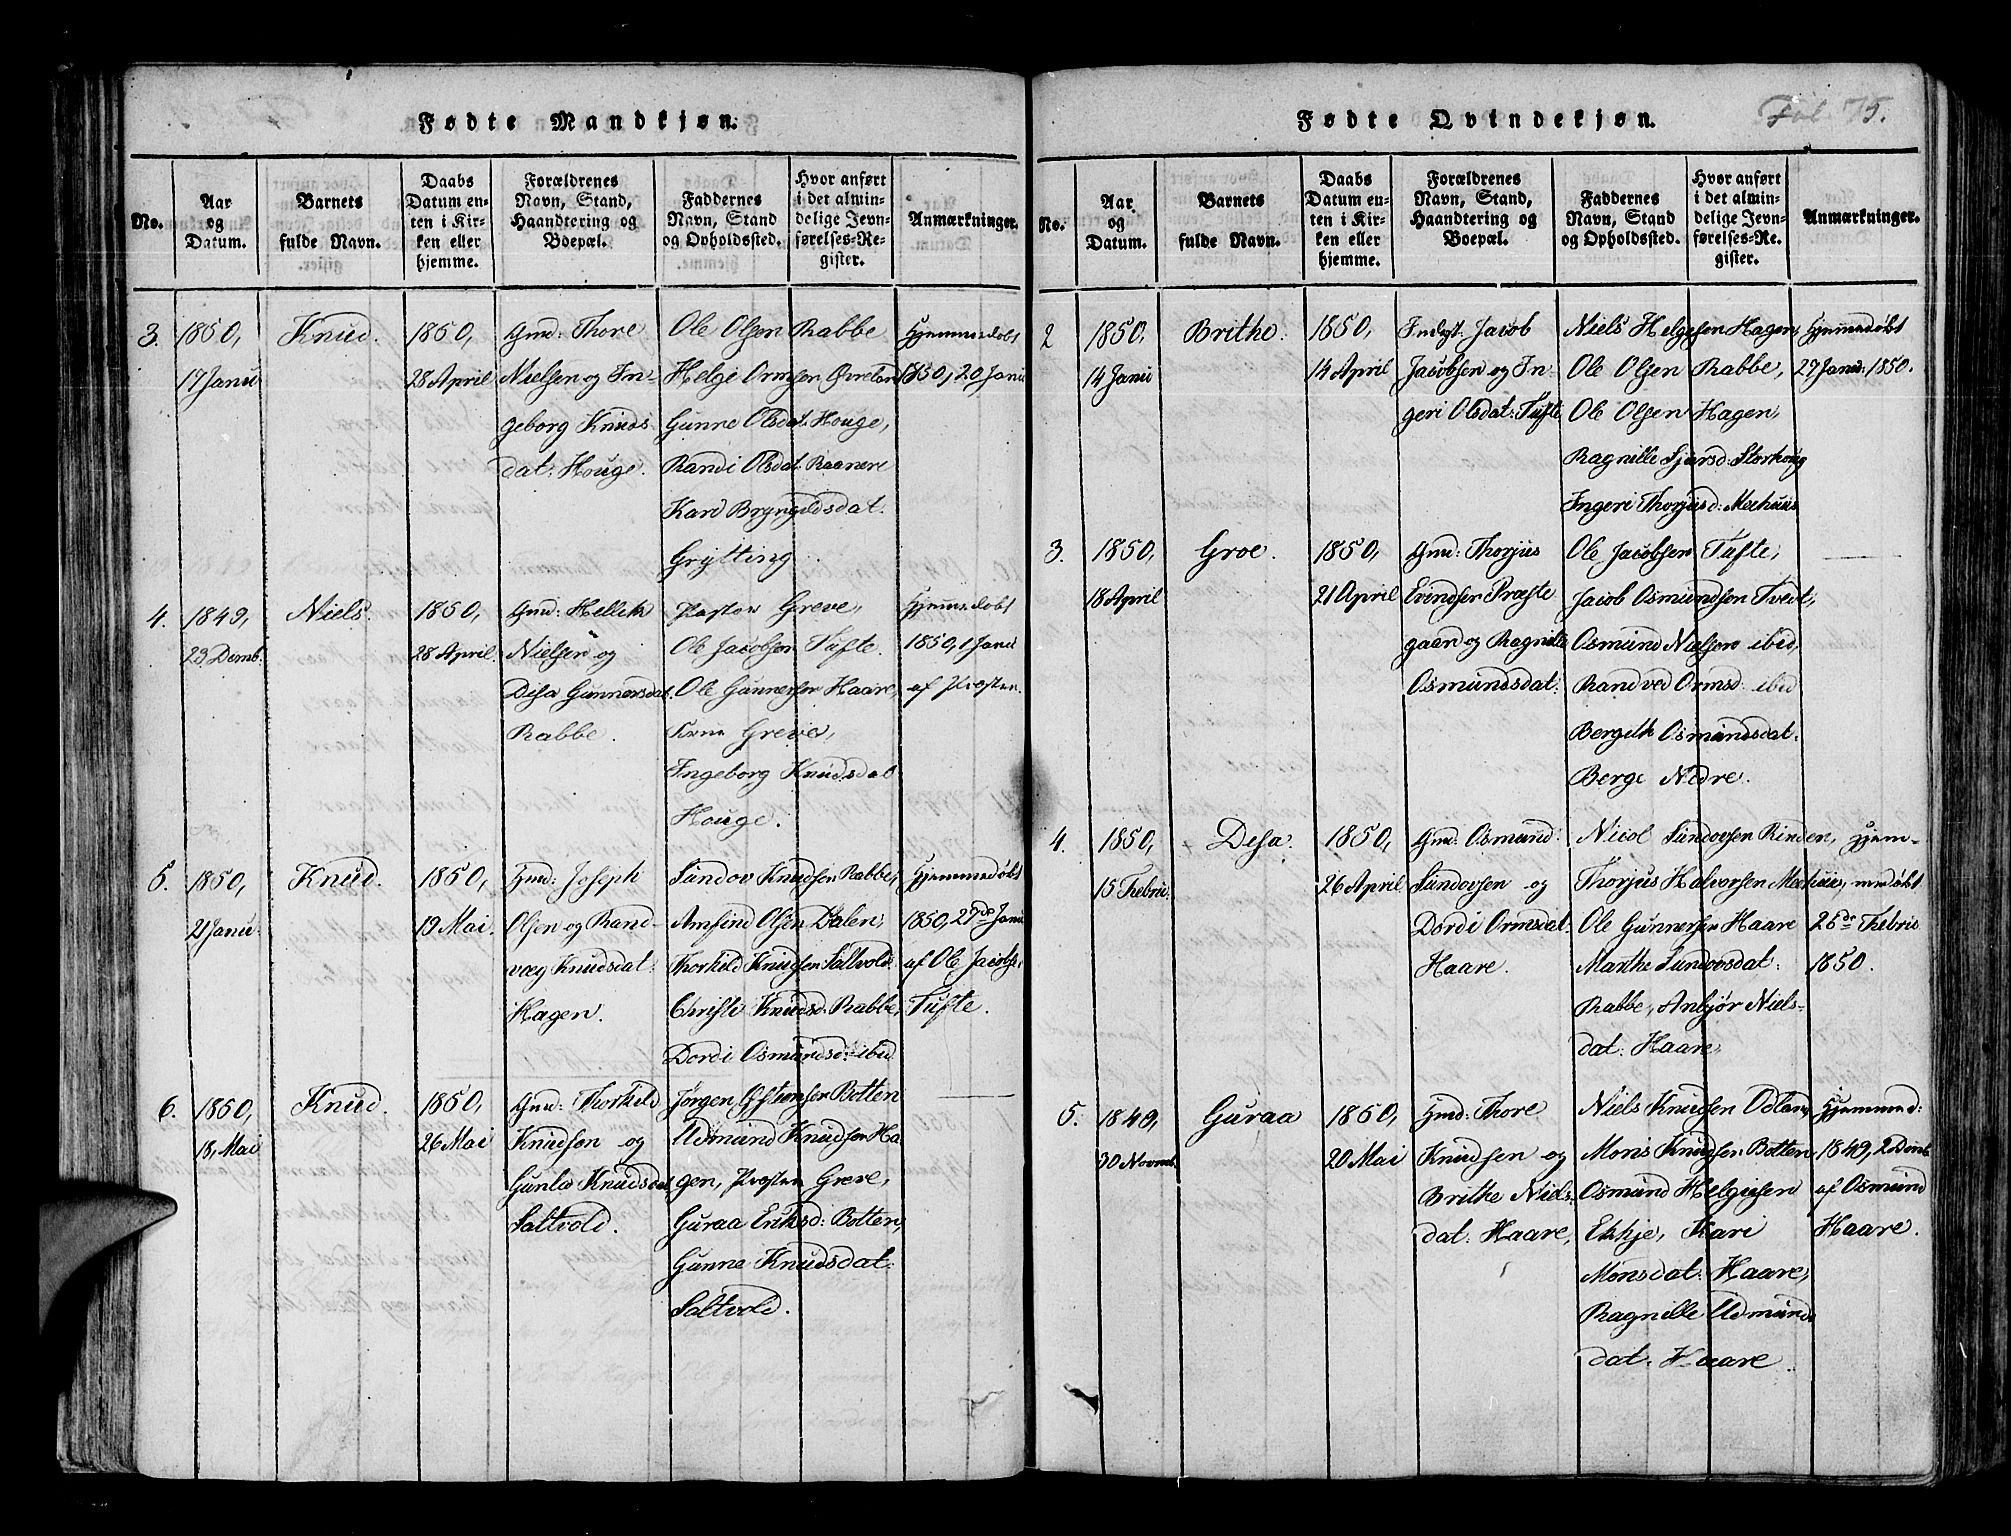 Fødte Mandkjøn.
No.
Aar
og
Datum.
Barnets
fulde Navn.
Daabs
Datum en-
ten i Kir-
ken eller
hjemme.
Forældrenes
Navn, Stand,
Haandtering og
Boepæl.
Faddernes
Navn, Stand
og Opholdssted.
Hvor anført
i det almin-
delige Jevn-
førelses-Re-
gister.
Anmærkninger.
3.
1850,
17 Janu
Knud.
1850,
28 April
Gmd: Thore
Nielsen og In-
geborg Knuds
dat: Houge.
Ole Olsen Rabbe
Helge Ormsen Øvreland
Gunne Olsdat: Houge,
Randi Olsdat: Raanere
Kari Bryngildsdat:
Grytting
Hjemmedøbt
1850, 20 Janu
4.
1849,
23 Demb.
Niels.
1850,
28 April.
Gmd: Hellik
Nielsen og
Desa Gunnersdat:
Rabbe.
Pastor Greve,
Ole Jacobsen Tufte.
Ole Gunnersen Haare,
Frue Greve,
Ingeborg Knudsdat
Houge.
Hjemmedøbt
1850, 1 Janu
af Præsten.
5.
1850,
21 Janu.
Knud.
1850,
19 Mai.
Gmd: Joseph
Olsen og Rand-
væg Knudsdat:
Hagen.
Sundov Knudsen Rabbe,
Amfind Olsen Dalen,
Thorkild Knudsen Saltvold
Christi Knudsd: Rabbe,
Dordi Osmundsd: ibid
Hjemmedøbt
1850, 27de Janu
af Ole Jacobs.
Tufte.
6.
1850,
18, Mai
Knud.
1850,
26 Mai
Gmd: Thorkild
Knudsen og
Gunla Knudsdat
Saltvold.
Jørgen Østensen Botten
Udmund Knudsen Ha
gen, Præsten Greve,
Guraa Eriksd: Botten,
Gunne Knudsdat:
Saltvold.
Fødte Qvindekjøn.
Fol. 75.
No.
Aar
og
Datum.
Barnets
fulde Navn.
Daabs
Datum en-
ten i Kir-
ken eller
hjemme.
Forældrenes
Navn, Stand,
Haandtering og
Boepæl.
Faddernes
Navn, Stand
og Opholdssted.
Hvor anført
i det almin-
delige Jevn-
førelses-Re-
gister.
Anmærkninger.
2
1850,
14 Janu
Brithe.
1850,
14 April
Indst: Jacob
Jacobsen og In-
geri Olsdat: Tufte
Niels Helgesen Hagen,
Ole Olsen Rabbe,
Ole Olsen Hagen,
Ragnille Sjursd: Storhoug
Ingeri Thorjusd: Meehuus
Hjemmedøbt
27 Janu: 1850.
3.
1850,
18 April
Groe.
1850,
21 April
Gmd: Thorjus
Evindsen Præste
gaard og Ragnille
Osmundsdat:
Ole Jacobsen Tufte,
Jacob Osmundsen Tvedt,
Osmund Nielsen ibid,
Randved Ormsd: ibid
Bergith Osmundsdat:
Berge Nedre.
4.
1850,
15 Febru.
Desa.
1850,
26 April
Gmd: Osmund
Sundovsen og
Dordi Ormsdat:
Haare.
Nicol Sundovsen Rinden,
Thorjus Halvorsen Meehuus,
Ole Gunnersen Haare
Marthe Sundovsdat:
Rabbe, Anbjør Niels-
dat: Haare,
Hjem-
medøbt
28de Febris
1850.
5.
1849,
30 Novemb.
Guraa
1850,
20 Mai
Gmd: Thore
Knudsen og
Brithe Niels
dat: Haare,
Niels Knudsen Odland,
Mons Knudsen Botten,
Osmund Helgiesen
Ekkje, Kari
Monsdat: Haare,
Ragnille Udmunds
dat: Haare.
Hjemmed:
1849, 2 Demb.
af Osmund
Haare.